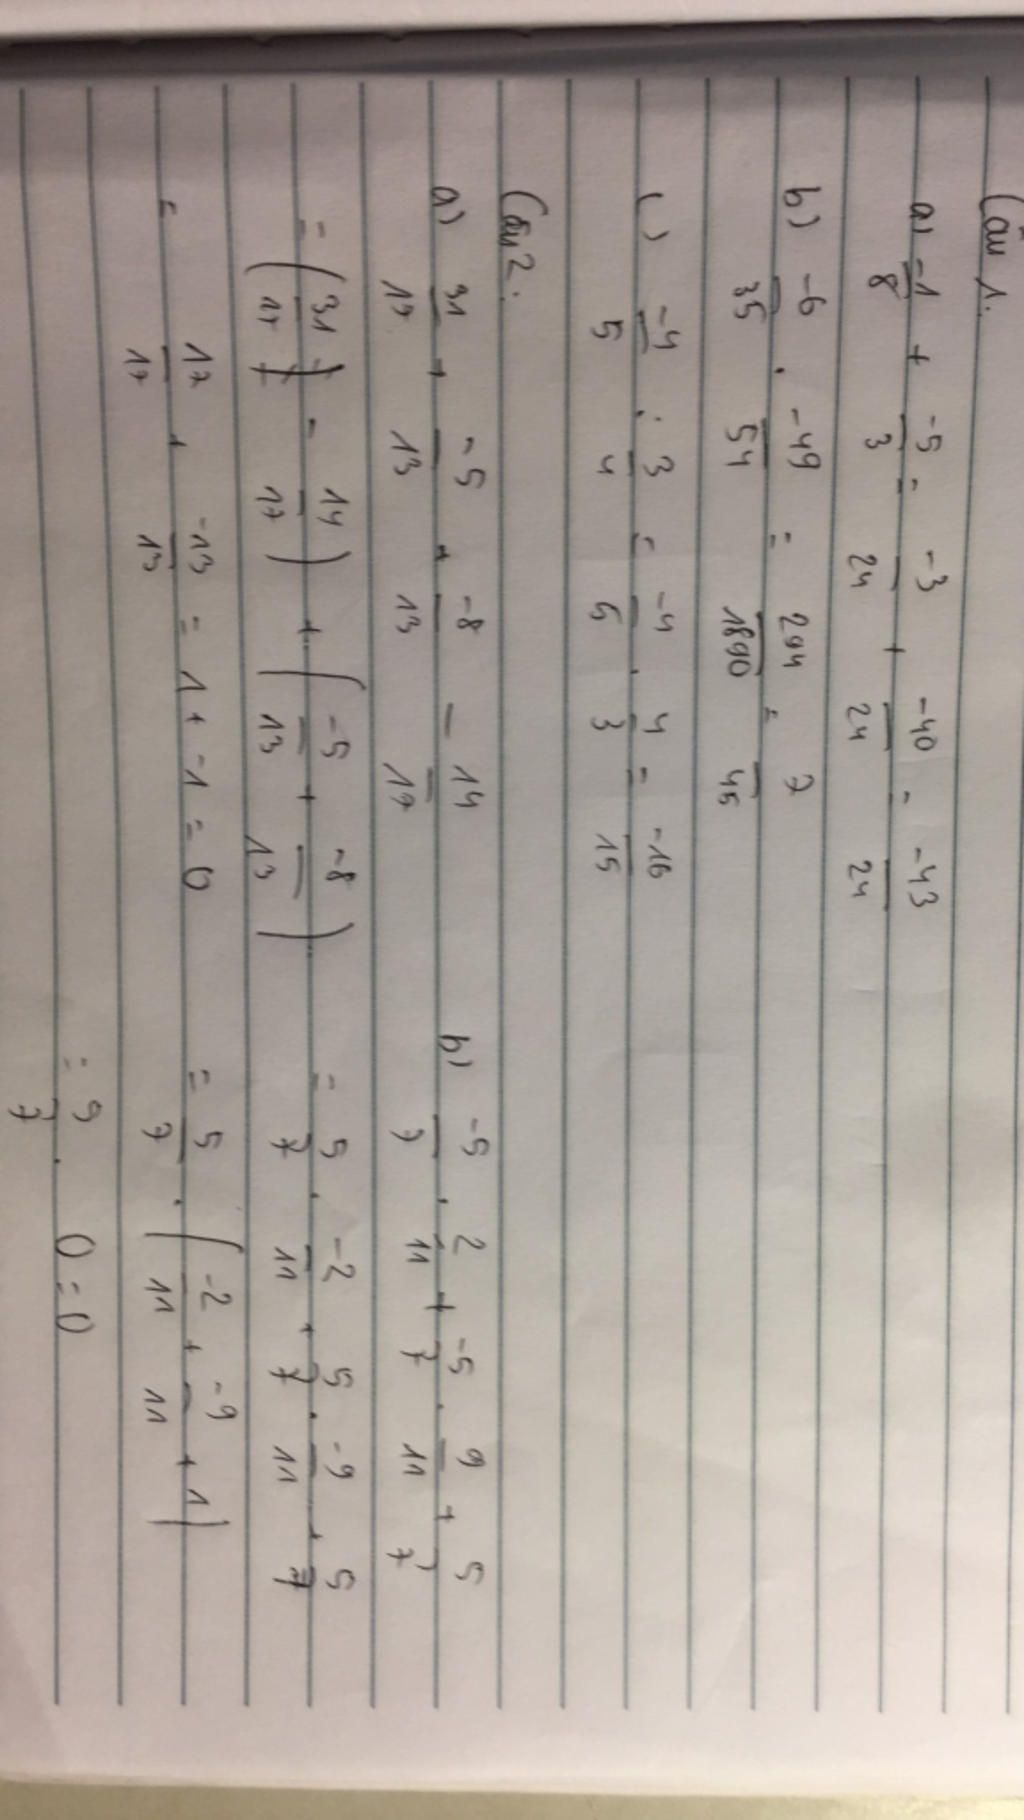 Câu 1.
a) -1/8 + -5/3 = -3/24 + -40/24 = -43/24
b) -6/35 . -49/54 = 294/1890 = 7/45
c) -4/5 : 3/4 = -4/5 . 4/3 = -16/15
Câu 2.
a) 31/17 + -5/13 + -8/13 - 14/17
= (31/17 - 14/17) + (-5/13 + -8/13)
= 17/17 + -13/13 = 1 + -1 = 0
b) -5/7 . 2/11 + -5/7 . 9/11 + 5/7
= 5/7 . -2/11 + 5/7 . -9/11 + 5/7
= 5/7 . (-2/11 + -9/11 + 1)
= 9/7 . 0 = 0